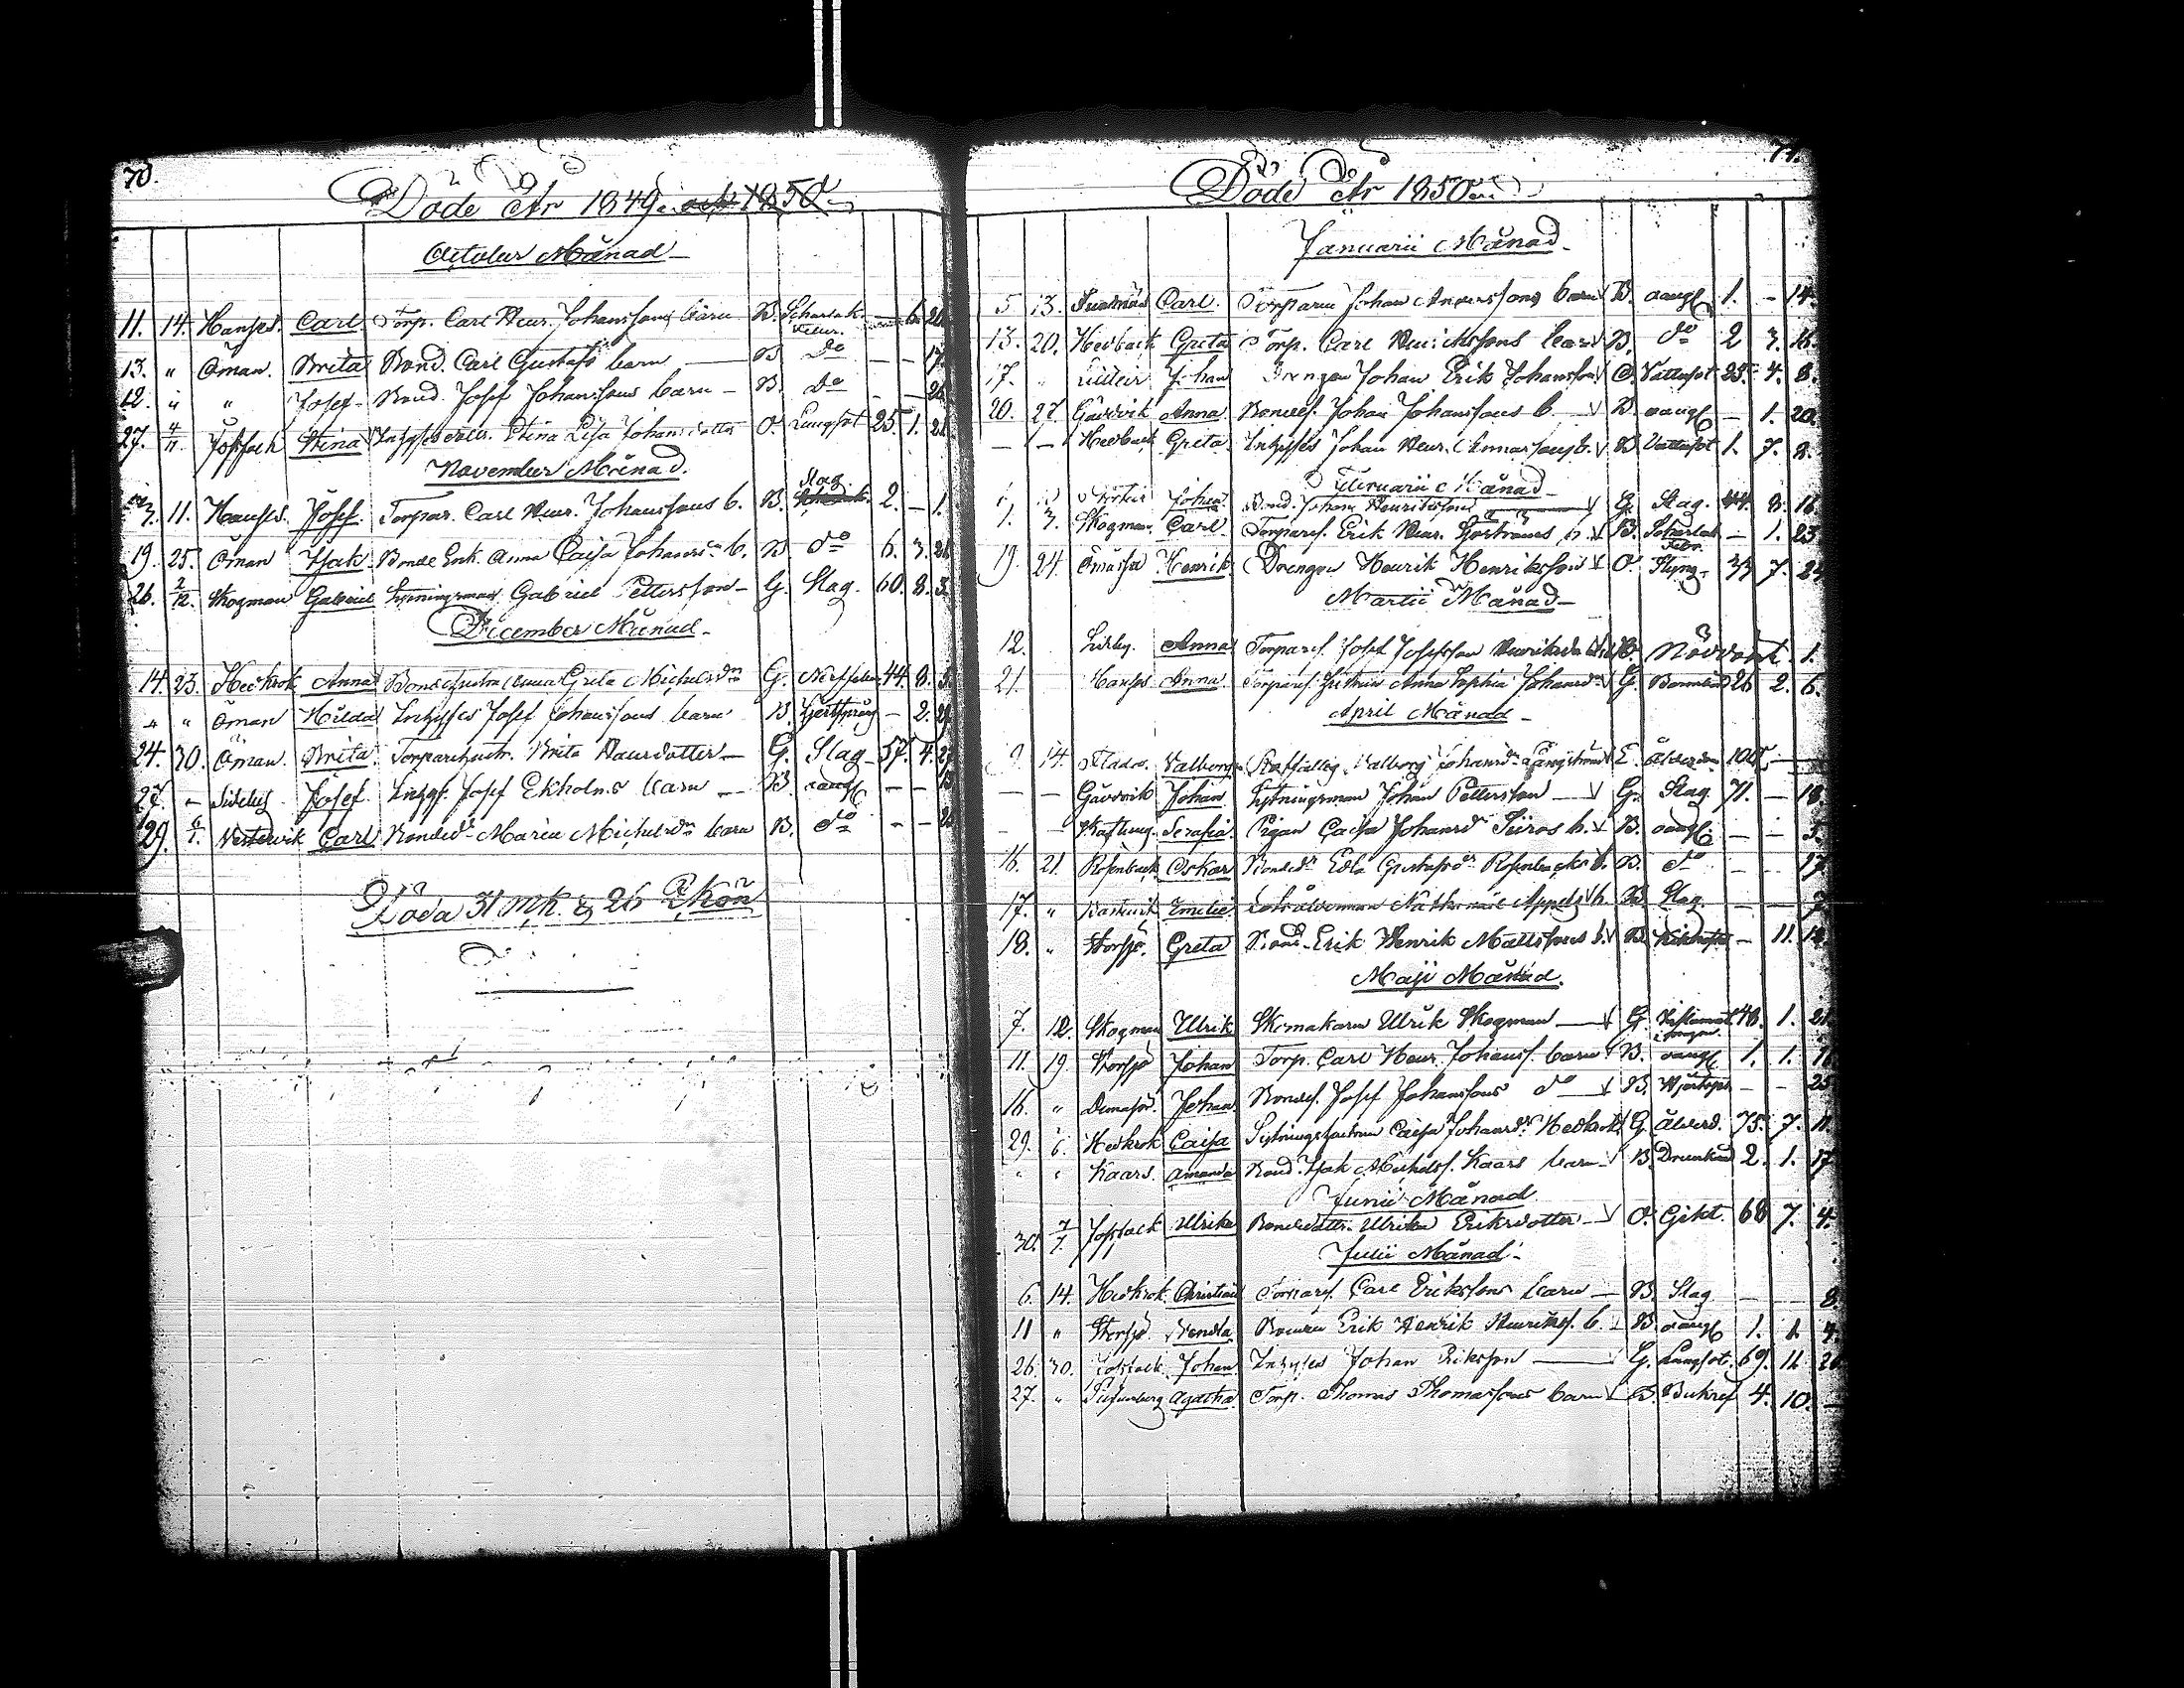 70.
Döde År 1849. och 1850
October Månad
11. 14. Hansas. Carl Torp. Carl Henr. Johanssons barn B. Scharlak. feber. — 6.
13. " Öman. Brita Bond. Carl Gustafs barn — B. do — — 17.
12. " " Josef Bond. Josef Johanssons barn — B. do — —
27. 4/11 Stina Inhyses dottr. Stina Lisa Johansdotter O. Lungsot 25. 1.
November Månad.
11. Hansas. Josef. Torpar. Carl Henr. Johanssons b. B. Slag 2. — 1.
19. 25. Öman Isak. Bonde Enk. Anna Caisa Johansdr b. B. do 6. 3.
26. 2/12. Skogman Gabriel Sytningsman Gabriel Pettersson — G. Slag. 60. 8. 3.
December Månad
14. 23. Hedkrok Anna Bondehustru Anna Greta Michelsdr G. 44. 8. 5.
" " Öman Hilda Inhyses Josef Johanssons barn B. — 2.
24. 30. Öman. Brita. Torparehustr. Brita Henrsdotter — G. Slag 57. 4.
27. — Sideby Josef. Inhys. Josef Ekholms barn — B. oangf — —
29. 6/1. Westervik Carl Bondedr Maria Michelsdr barn B. do — —
Döda 31 Mk. & 26 Qkön
71.
Döde År 1850.
Januarii Månad
5 13. Carl. Torparen Johan Anderssons barn B. oangf 1. — 14.
13. 20. Hedback Greta Torp. Carl Henrikssons barn B. do 2 3. 16.
17. " Johan Drengen Johan Erik Johansson O. Vattusot 25. 4. 8.
20. 27. Gårdvik Anna Bondes. Johan Johanssons b. B. oangf — 1. 20.
— — Hedback Greta Inhyses Johan Henr. b. B. Vattusot 1. 7. 8.
Februarii Månad
Johan Bond. Johan Henriksson G. Slag. 44. 8. 16
1. 3. Skogman Carl Torpares. Erik Henr. b. B. Scharlak Febr. — 1. 23
19. 24. Henrik Drengen Henrik Henriksson O. Styng 33 7.
Martii Månad
12. Anna Torpares. Josef Josefsson 1.
21. Hansas Anna Torpares. Hustrun Anna Sophia Johansdr G. Barnsbörd 26 2. 6.
April Månad
9. 14. Valborg Valborg Johansdr Långström E. Ålderdom 100 —
— — Gårdvik Johan Sytningsman Johan Pettersson G. Slag. 71. — 18.
— — Serafia. Pigan Caisa Johansdr b. B. oangf. — — 5.
16. 21. Rosenback Oskar Bondedr Edla Gustafsdr Rosenbacks b. B. do — — 17
17. " Emelie b. B. Slag. — — 7.
18. " Storsjö. Greta Bond. Erik Henrik Mattssons b. B. Kikhosta — 11.
Maji Månad.
7. 12. Skogman Ulrik Skomakarn Ulrik Skogman G. 48. 1. 21
11. 19. Storsjö Johan Torp. Carl Henr. Johanss. barn B. oangf 1. 1.
16. " Johan. Bondes. Josef Johanssons do B. — — 25
29. 6. Hedkrok Caisa Sytningshustrun Caisa Johansdr Hedkrok G. Ålderd. 75. 7. 11.
" " Kaars. Amanda Bond. Isak Michelss. Kaars barn B. Drunknad 2. 1. 17
Junii Månad
30. 7/7. Ulrika Bondedottr. Ulrika Eriksdotter O. Gikt. 68 7. 4.
Julii Månad
6. 14. Hedkrok. Christian Torpares. Carl Erikssons barn — B. Slag — — 8.
11 " Storsjö. Erik Henrik Henrikss. b. B. oangf 1. 1.
26. 30. Johan Inhyses Johan Eriksson G. Lungsot. 69. 11.
27. " Agatha. Torp. Thomas Thomassons barn B. Bukref 4. 10. —